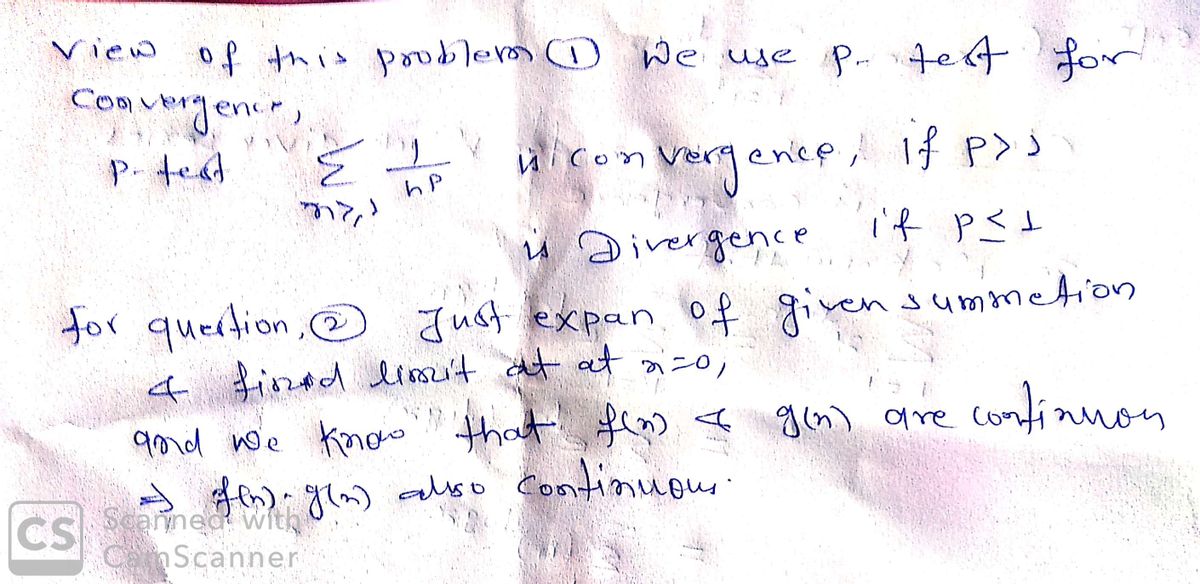 View of this problem ① We use p- test for
Convergence,
p-test ∑ n≥1 1/n^p is convergence, if p>1
is Divergence if p≤1
for question, ② Just expan of given summetion
& find limit at at x=0,
and we know that f(n) & g(n) are continuou
⇒ f(n)·g(n) also continuous.
CS Scanned with
CamScanner